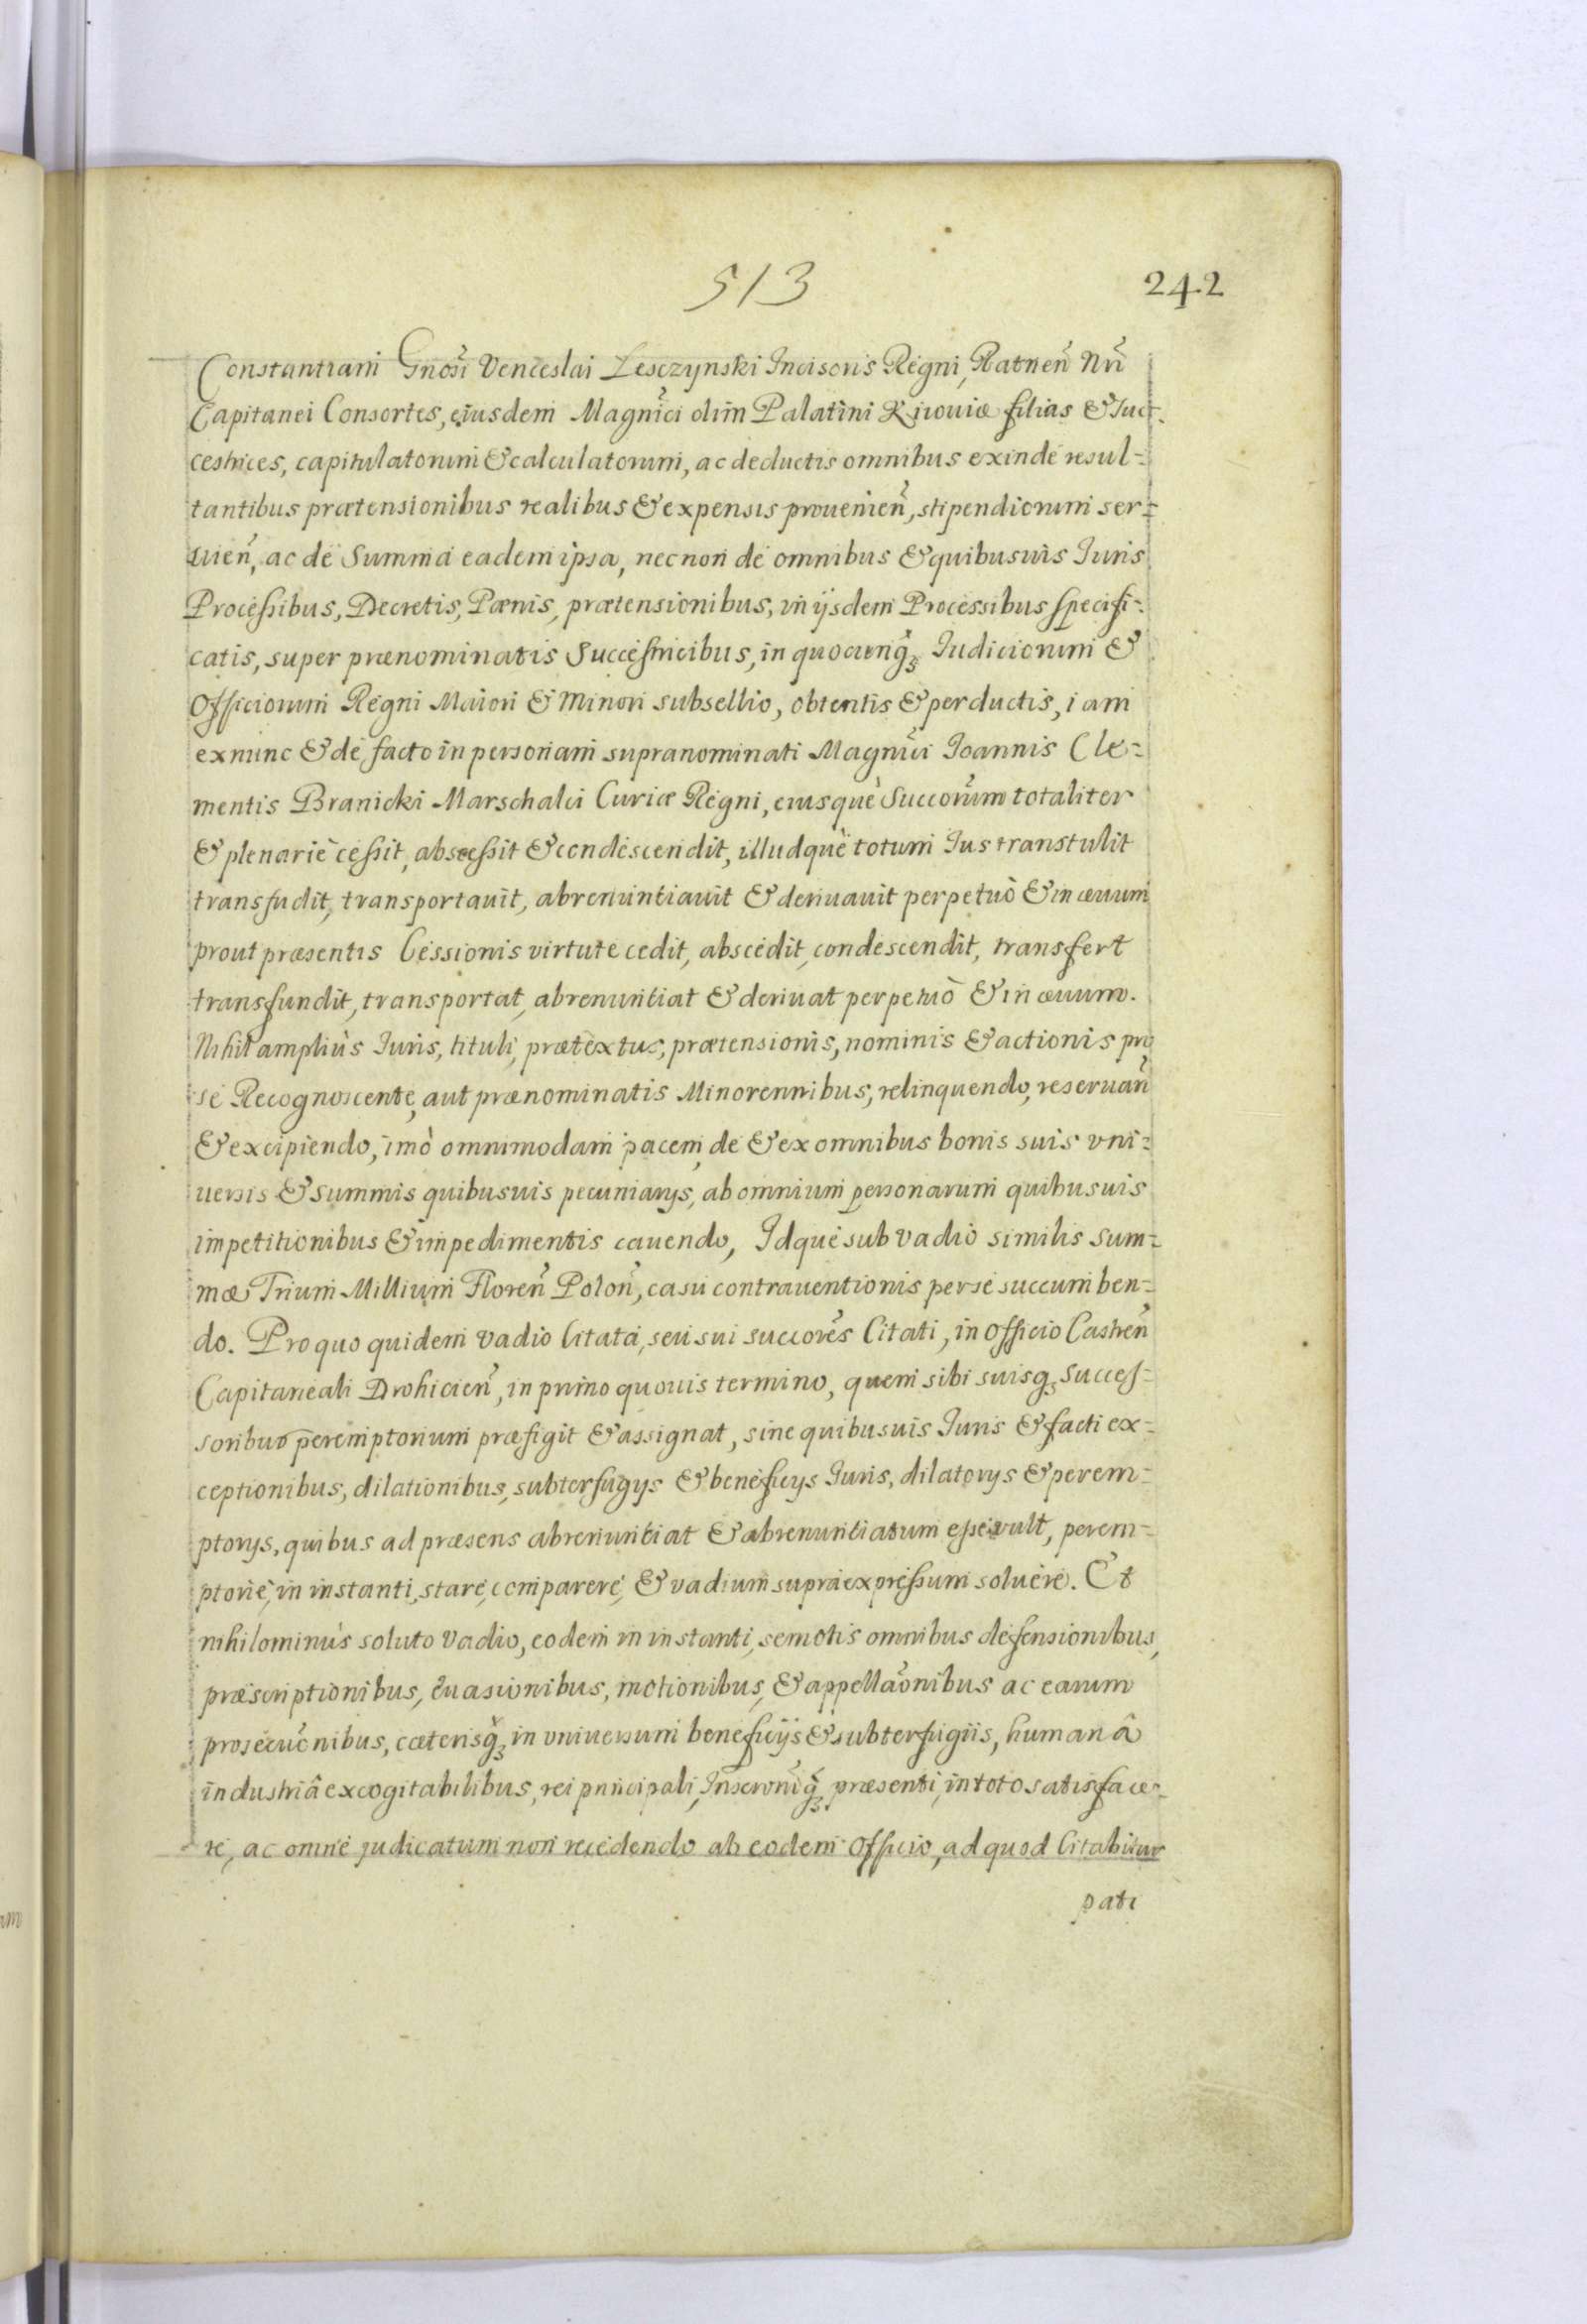 513
242
Constantiam Gnosi Venceslai Lesczynski Incisoris Regni, Ratnen̄ Nrī
Capitanei Consortes, ejusdem Magnīci olim Palatini Kiiouiæ filias & Suc-
cestrices, capitulatorum & calculatorum, ac deductis omnibus exinde resul-
tantibus prætensionibus realibus & expensis prouenien̄, stipendiorum ser-
uien̄, ac de Summa eadem ipsa, nec non de omnibus & quibusuis Iuris
Processibus, Decretis, Pænis, prætensionibus, in ijsdem Processibus specifi-
catis, super prænominatis Successricibus, in quocunq̄ꝫ Iudiciorum &
Officiorum Regni Maiori & Minori subsellio, obtentis & perductis, iam
ex nunc & de facto in personam supranominati Magnīci Joannis Cle-
mentis Branicki Marschalci Curiæ Regni, eiusquè Succorūm totaliter
& plenariè cessit, abscessit & condescendit, illudquè totum Jus transtulit
transfudit, transportauit, abrenuntiauit & deriuauit perpetuò & in æuum
prout præsentis Cessionis virtute cedit, abscedit, condescendit, transfert
transfundit, transportat, abrenuntiat & deriuat perpetuò & in æuum.
Nihil ampliùs Juris, tituli, prætextus, prætensionis, nominis & actionis pro
se Recognoscente, aut prænominatis Minorennibus, relinquendo, reseruan̄
& excipiendo, imò omnimodam pacem, de & ex omnibus bonis suis vni-
uersis & summis quibusuis pecuniarys, ab omnium personarum quibusuis
impetitionibus & impedimentis cauendo, Idque sub vadio similis sum-
mæ Trium Millium Floren̄ Polon̄, casu contrauentionis per se succumben-
do. Pro quo quidem vadio Citata, seu sui succorēs Citati, in Officio Castren̄
Capitaneali Drohicien̄, in primo quouis termino, quem sibi suisqꝫ succes-
soribus peremptorium præfigit & assignat, sine quibusuis Juris & facti ex-
ceptionibus, dilationibus, subterfugys & beneficys Juris, dilatorys & perem-
ptorys, quibus ad præsens abrenuntiat & abrenuntiatum esse vult, perem-
ptoriè, in instanti, stare, comparere, & vadium supra expressum soluere. Et
nihilominùs soluto vadio, eodem in instanti, semotis omnibus defensionibus,
præscriptionibus, euasionibus, motionibus, & appellaōnibus ac earum
prosecuōnibus, cæterisq̄ꝫ in vniuersum beneficijs & subterfugiis, humanâ
industriâ excogitabilibus, rei principali, Inscronīq̄ꝫ præsenti, in toto satisface-
re, ac omne judicatum non recedendo ab eodem Officio, ad quod Citabitur
pati